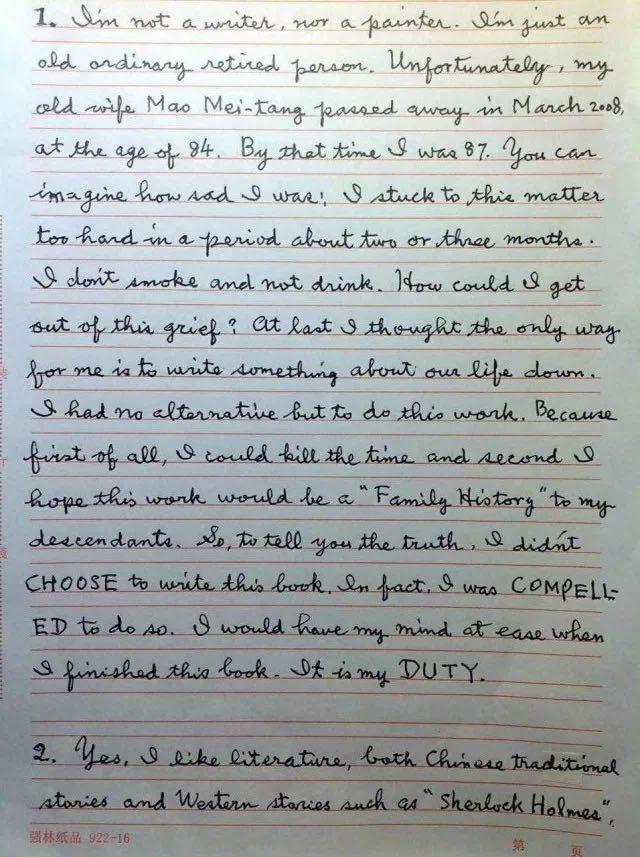 1. I'm not a writer, nor a painter. I'm just an
old ordinary retired person. Unfortunately, my
old wife Mao Mei-tang passed away in March 2008,
at the age of 84. By that time I was 87. You can
imagine how sad I was! I stuck to this matter
too hard in a period about two or three months.
I don't smoke and not drink. How could I get
out of this grief? At last I thought the only way
for me is to write something about our life down.
I had no alternative but to do this work. Because
first of all, I could kill the time and second I
hope this work would be a "Family History" to my
descendants. So, to tell you the truth, I didn't
CHOOSE to write this book. In fact, I was COMPELL-
ED to do so. I would have my mind at ease when
I finished this book. It is my DUTY.
2. Yes, I like literature, both Chinese traditional
stories and Western stories such as "Sherlock Holmes",
强林纸品 922-16
第 页